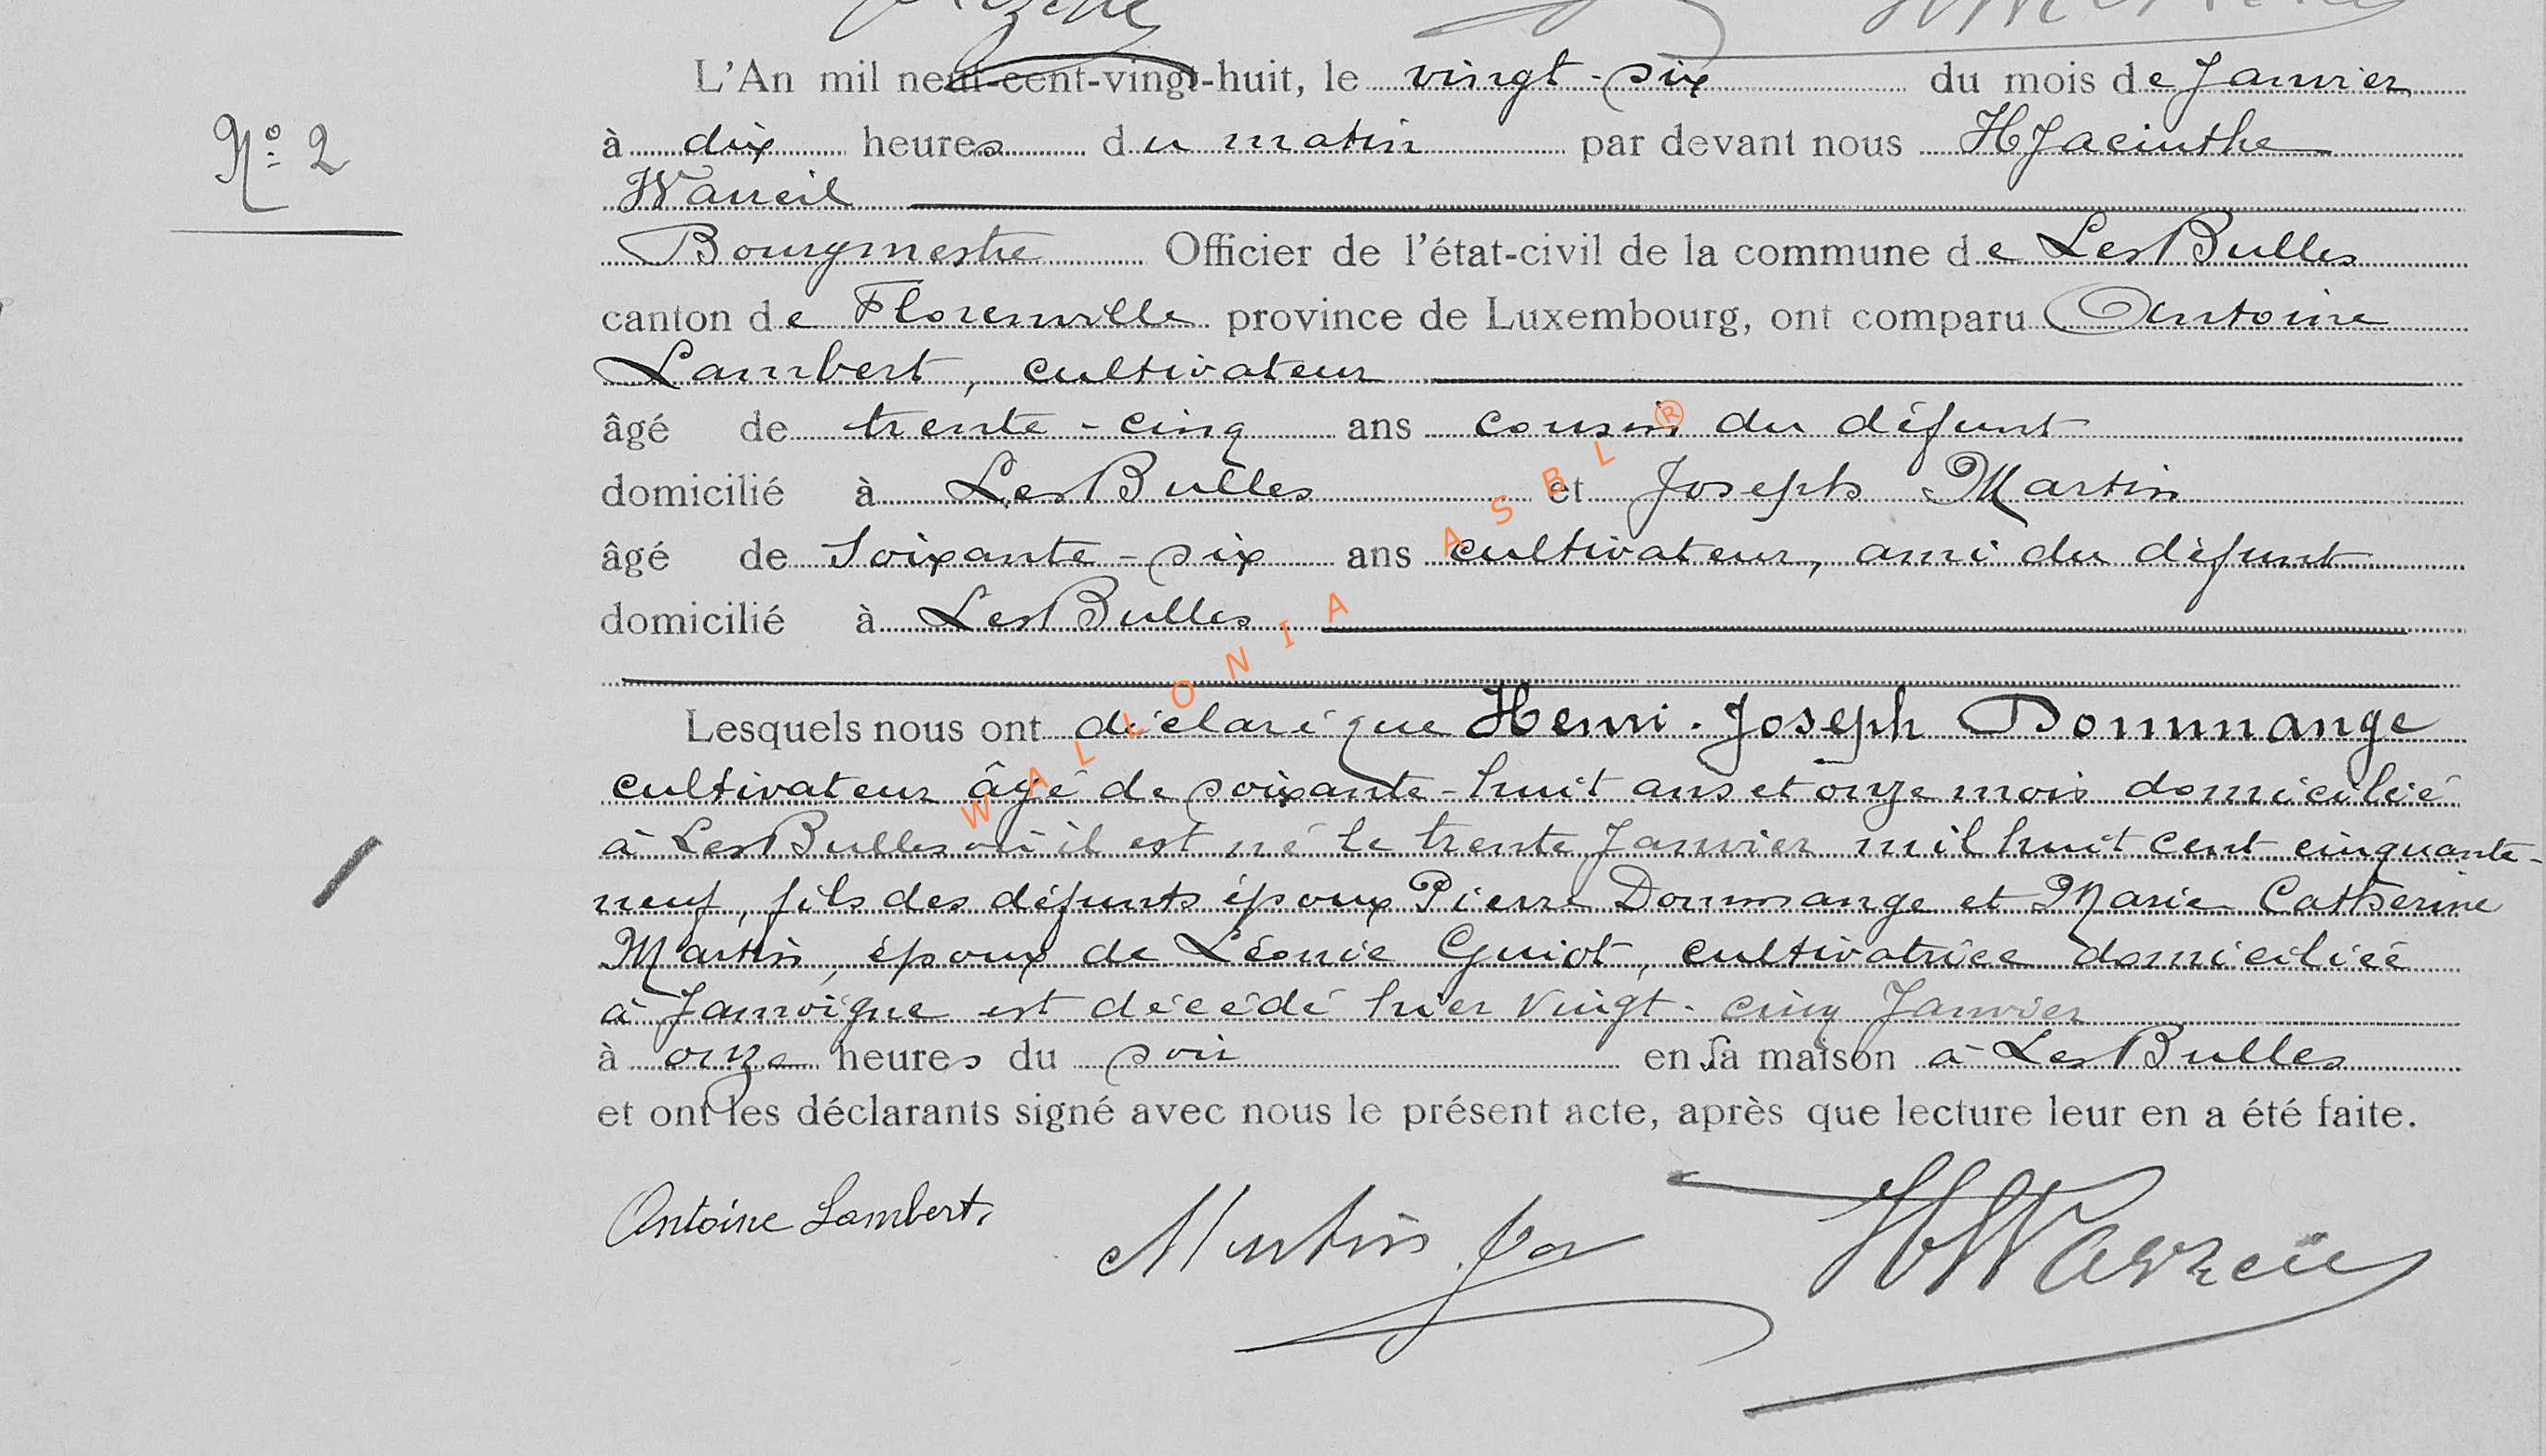 L'An mil neuf-cent-vingt-huit, le vingt-six du mois de Janvier
N° 2
à dix heures du matin par devant nous HJacinthe
Warreil
Bourgmestre Officier de l'état-civil de la commune de Les Bulles
canton de Florenville province de Luxembourg, ont comparu Antoine
Lambert, cultivateur
âgé de trente-cinq ans cousin du défunt
domicilié à Les Bulles et Joseph Martin
âgé de Soixante-six ans cultivateur, ami du défunt
domicilié à Les Bulles
Lesquels nous ont déclaré que Henri-Joseph Dommange
cultivateur âgé de soixante-huit ans et onze mois domicilié
à Les Bulles où il est né le trente Janvier mil huit cent cinquante-
neuf, fils des défunts époux Pierre Dommange et Marie Catherine
Martin, époux de Léonie Guiot, cultivatrice domiciliée
à Jamoigne est décédé hier vingt-cinq Janvier
à onze heures du soir en sa maison à Les Bulles
et ont les déclarants signé avec nous le présent acte, après que lecture leur en a été faite.
Antoine Lambert. Martin Jos HWarreil
WALLONIA ASBL ®